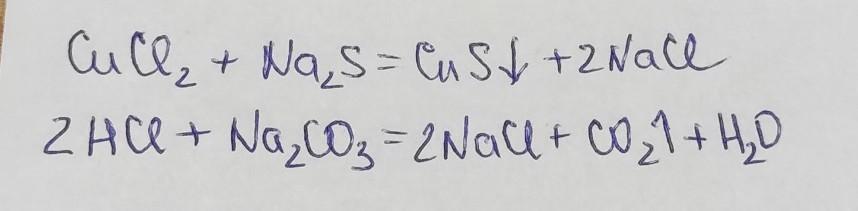 CuCl₂ + Na₂S = CuS↓ + 2NaCl
2HCl + Na₂CO₃ = 2NaCl + CO₂↑ + H₂O